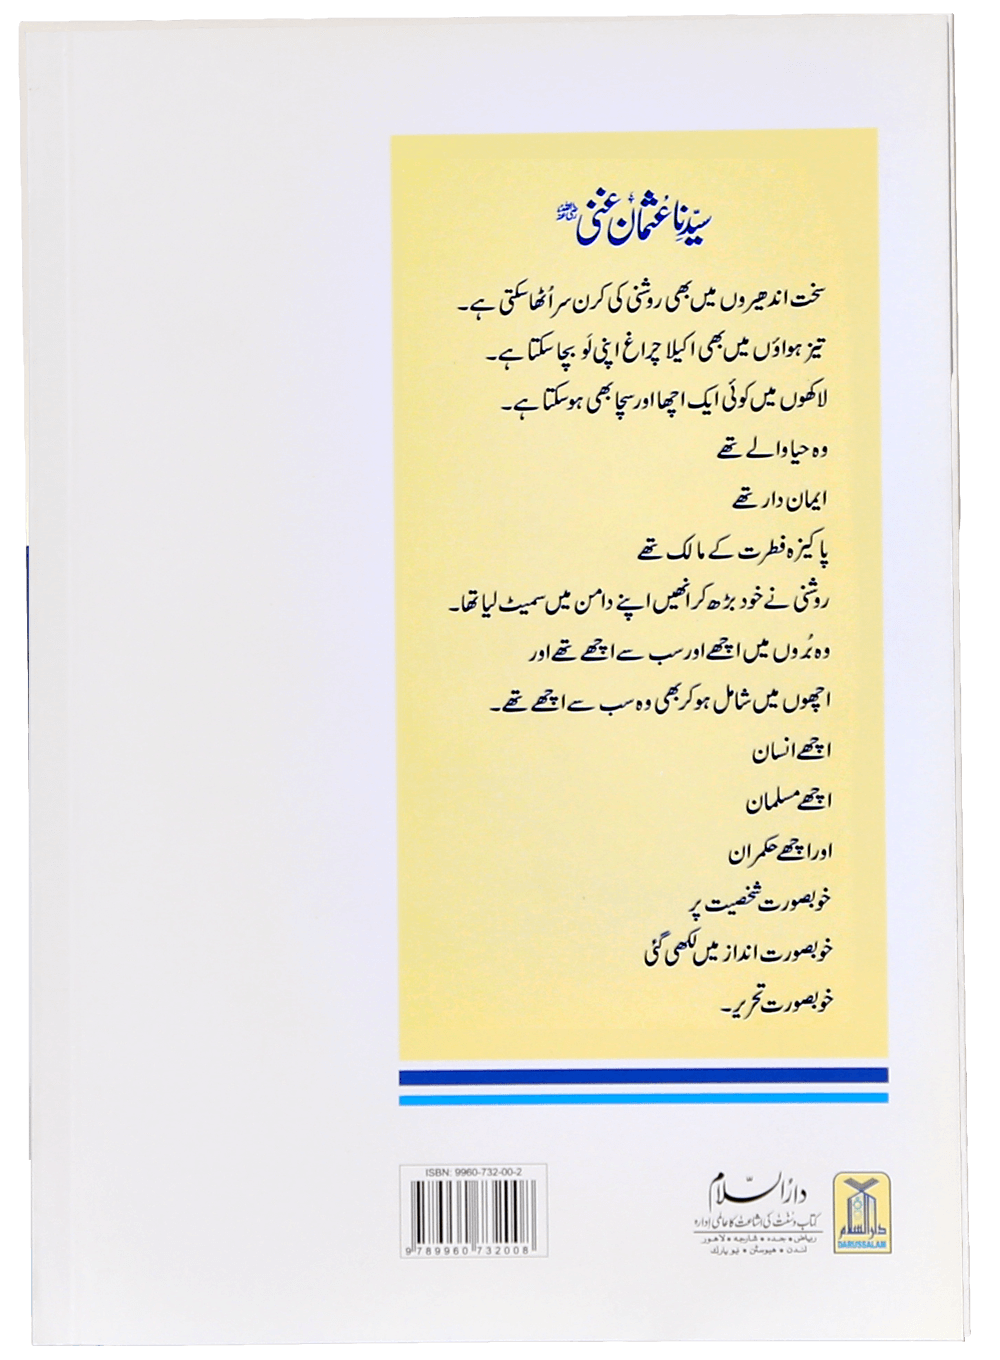 سیّدنا عُثمان غنی ؓ
سخت اندھیروں میں بھی روشنی کی کرن سر اُٹھا سکتی ہے۔
تیز ہواؤں میں بھی اکیلا چراغ اپنی لَو بچا سکتا ہے۔
لاکھوں میں کوئی ایک اچھا اور سچا بھی ہو سکتا ہے۔
وہ حیا والے تھے
ایمان دار تھے
پاکیزہ فطرت کے مالک تھے
روشنی نے خود بڑھ کر انھیں اپنے دامن میں سمیٹ لیا تھا۔
وہ بُروں میں اچھے اور سب سے اچھے تھے اور
اچھوں میں شامل ہو کر بھی وہ سب سے اچھے تھے۔
اچھے انسان
اچھے مسلمان
اور اچھے حکمران
خوبصورت شخصیت پر
خوبصورت انداز میں لکھی گئی
خوبصورت تحریر۔
ISBN: 9960-732-00-2
9 789960 732008
دارُالسّلام
کتاب و سنّت کی اشاعت کا عالمی ادارہ
ریاض • جدہ • شارجہ • لاہور
لندن • ہیوسٹن • نیو یارک
دارالسلام
DARUSSALAM